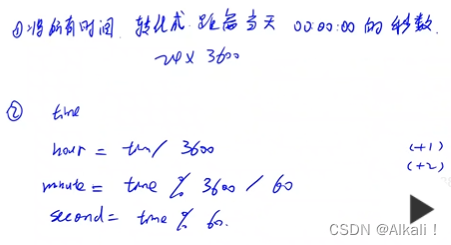 ①将所有时间 转化成 距离当天 00:00:00 的 秒数
24 x 3600
② time
hour = tm / 3600 (+1)
(+2)
minute = time % 3600 / 60
second = time % 60.
CSDN @Alkali！